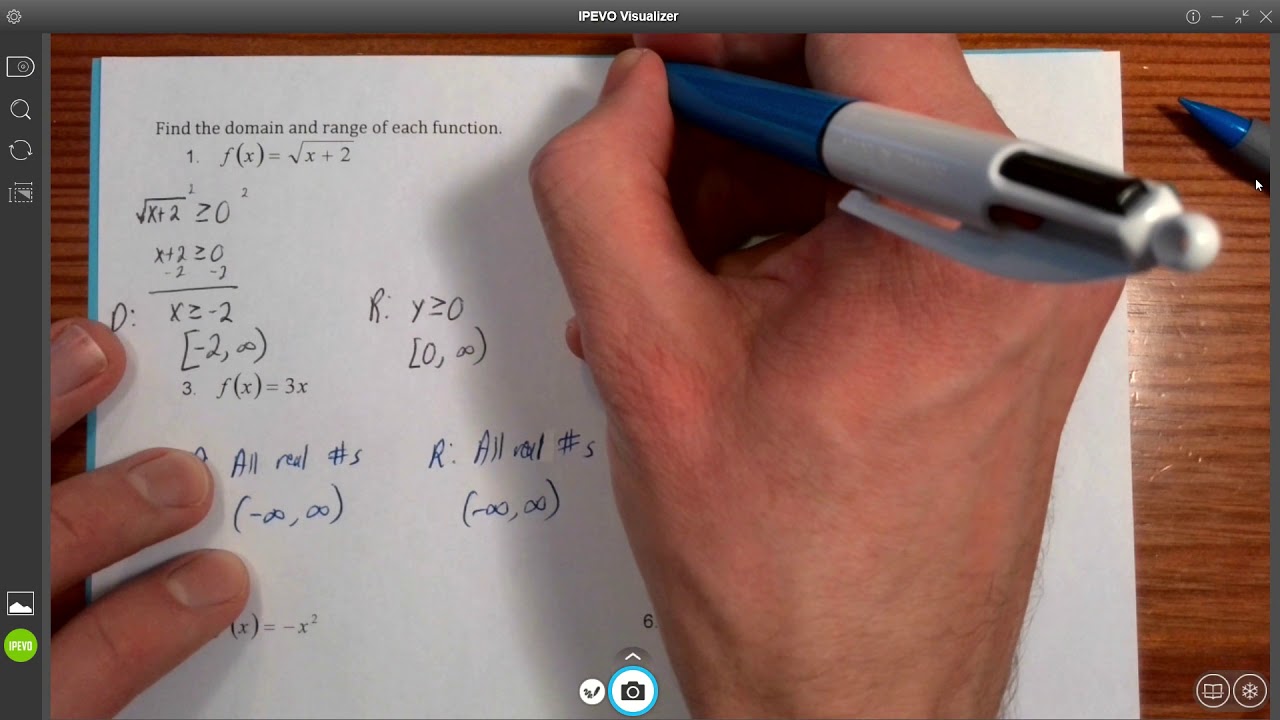 IPEVO Visualizer
Find the domain and range of each function.
1. f(x) = √x + 2
√x+2 ² ≥ 0 ²
x+2 ≥ 0
-2 -2
D: x ≥ -2 R: y ≥ 0
[-2, ∞) [0, ∞)
3. f(x) = 3x
All real #s R: All real #s
(-∞, ∞) (-∞, ∞)
(x) = −x²
6.
IPEVO